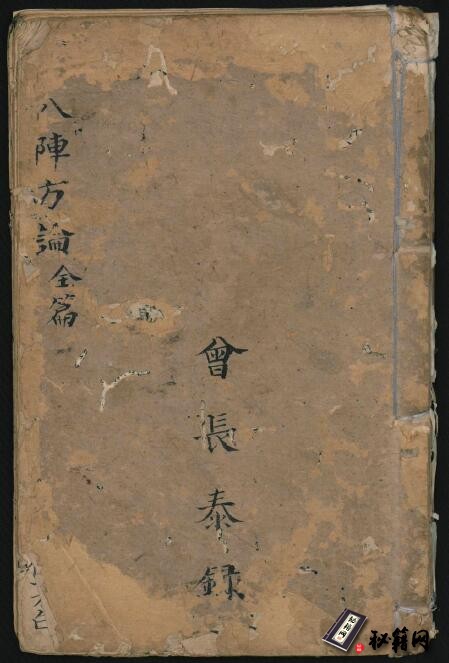 八陣方論全篇
曾長泰録
秘籍网
秘籍网